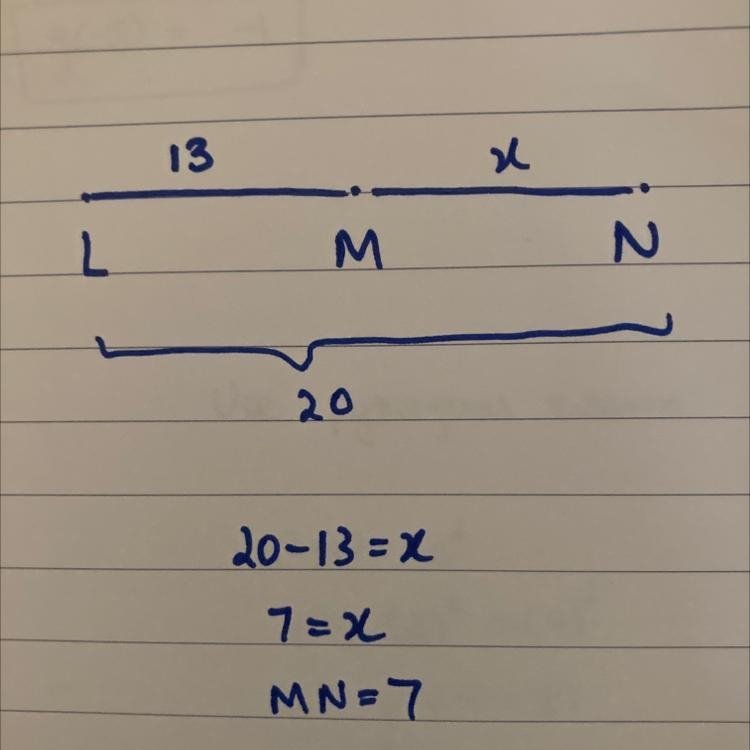 13 x
L M N
20
20-13=x
7=x
MN=7